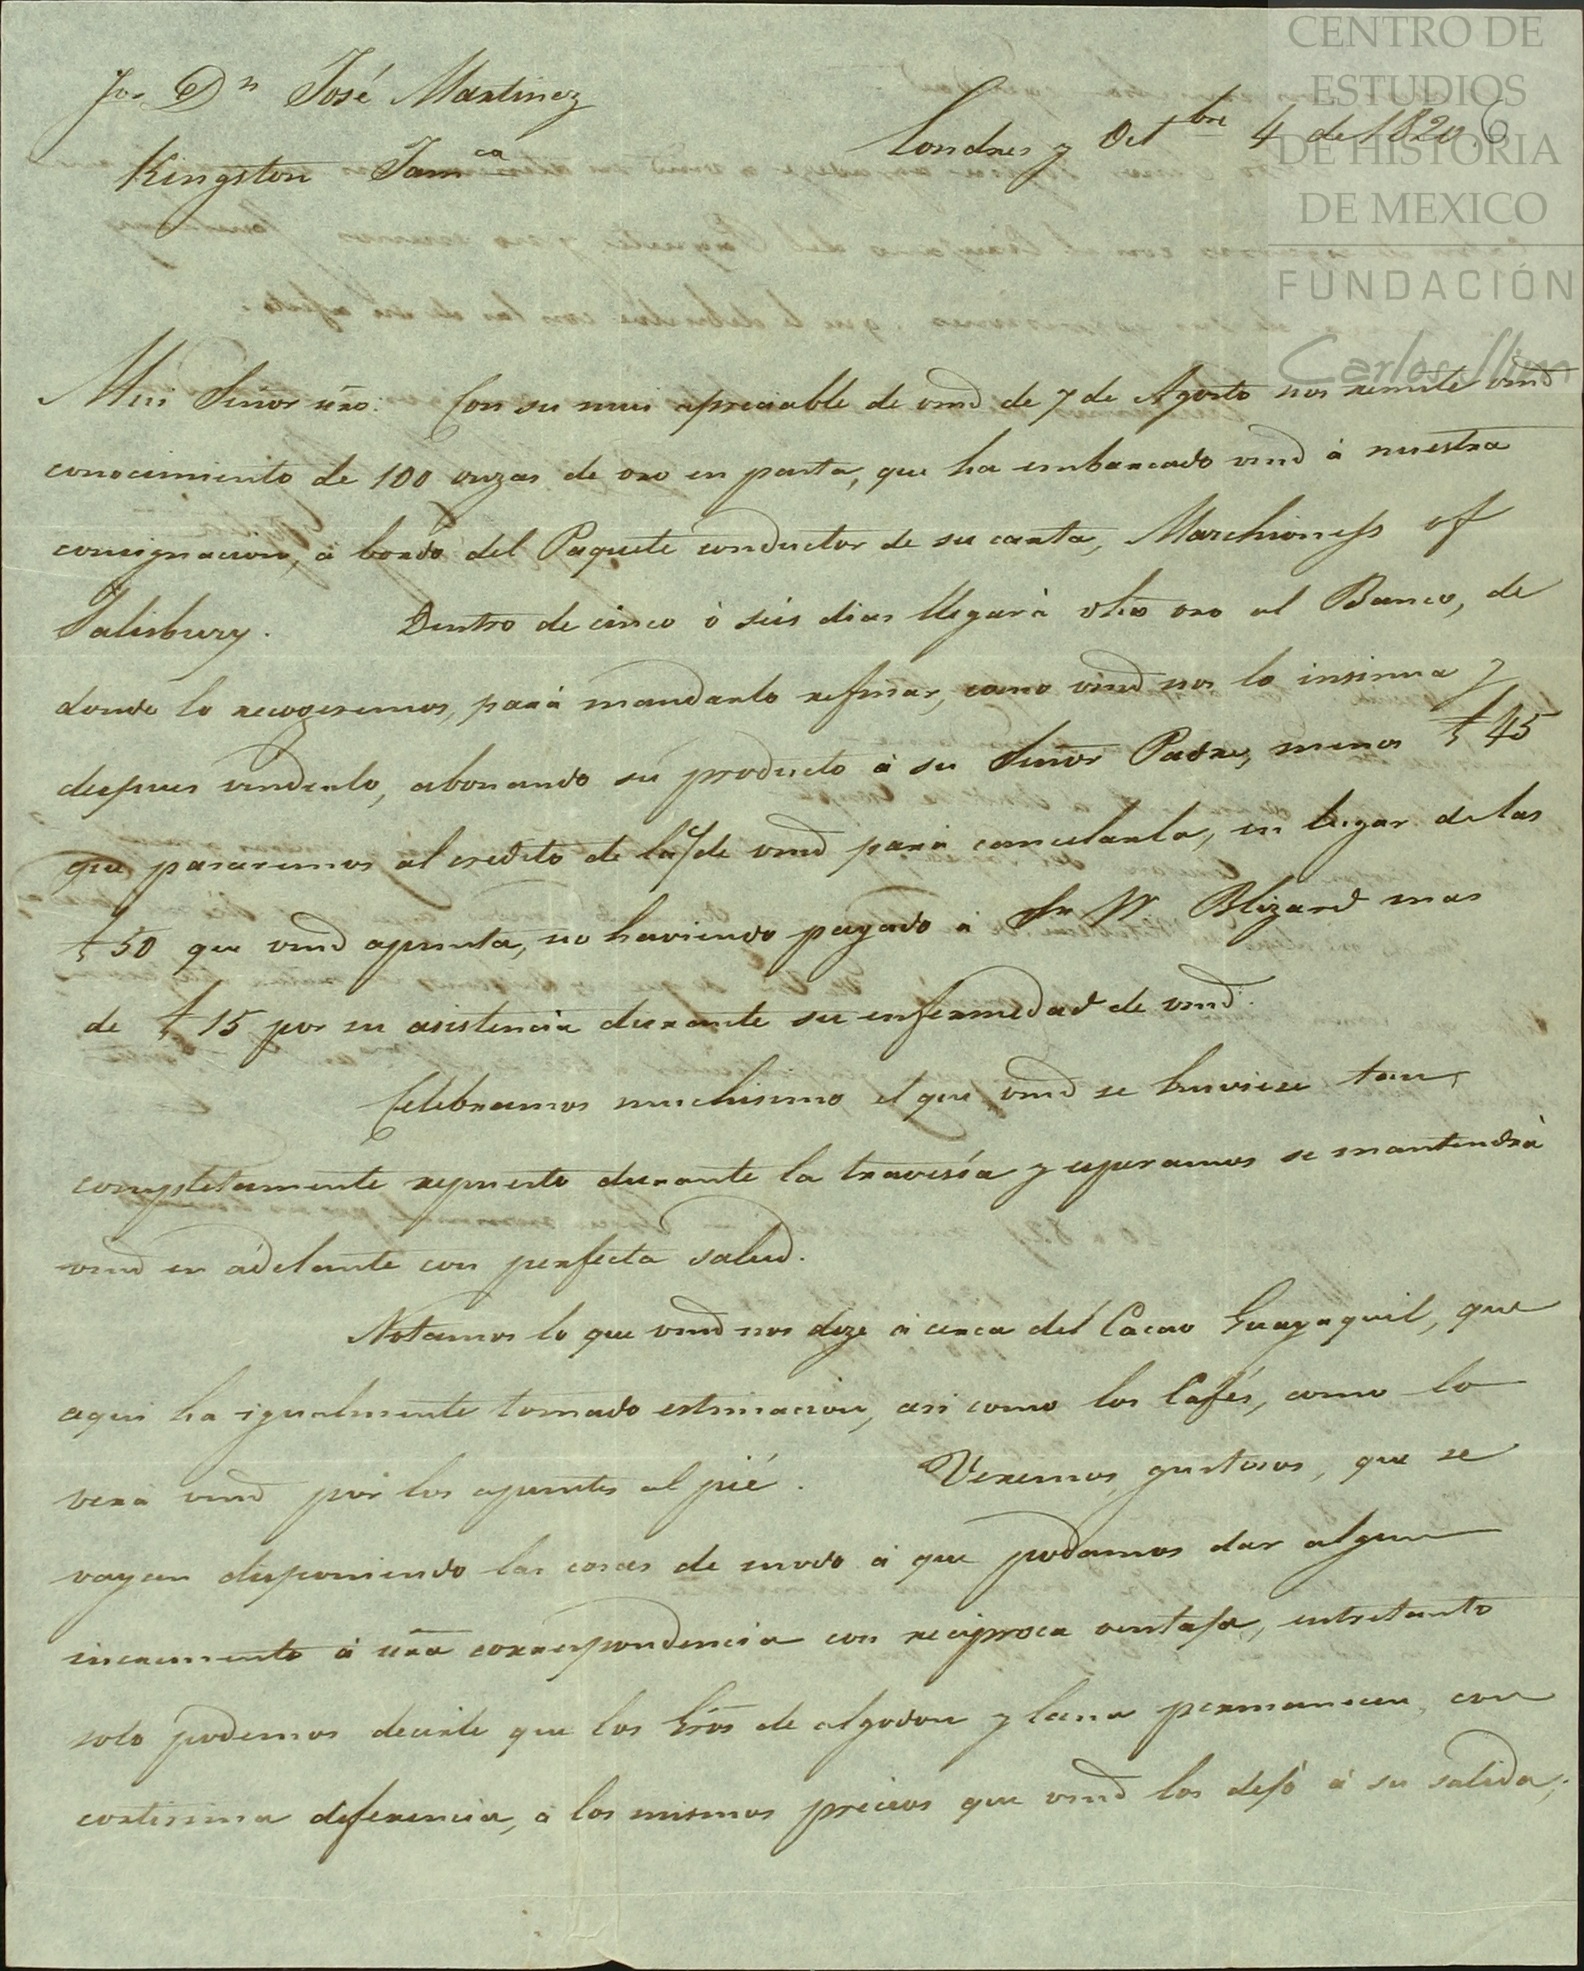 Sor Dn José Martinez
Kingston Jamca
Londres y Octbre 4 de 1820.
Mui Señor nro: Con su mui apreciable de vmd de 7 de Agosto nos remite vmd
conocimiento de 100 onzas de oro en pasta, que ha embarcado vmd à nuestra
consignacion, à bordo del Paquete conductor de su carta, Marchioness of
Salisbury. Dentro de cinco ò seis dias llegarà dho oro al Banco, de
donde lo recogeremos, parà mandarlo refinar, como vmd nos lo insinua y
despues venderlo, abonando su producto à su Señor Padre, menos £45
que pasaremos al credito de la c/ de vmd parà cancelarla, en lugar de las
£50 que vmd apunta, no haviendo pagado à Sr W Blizard mas
de £15 por su asistencia durante su enfermedad de vmd.
Celebramos muchisimo el que vmd se huviese tan
completamente repuesto durante la travesía y esperamos se mantendrà
vmd en adelante con perfecta salud.
Notamos lo que vmd nos dize à cerca del Cacao Guayaquil, que
aqui ha igualmente tomado estimacion, asi como los Cafés, como lo
verà vmd por los apuntes al pié. Veremos gustosos, que se
vayan disponiendo las cosas de modo à que podamos dar algun
incremento à nra correspondencia con reciproca ventaja, entretanto
solo podemos decirle que los Gros de algodon y lana permanecen, con
cortisima diferencia, à los mismos precios que vmd los dejó à su salida;
CENTRO DE
ESTUDIOS
DE HISTORIA
DE MEXICO
FUNDACIÓN
Carlos Slim